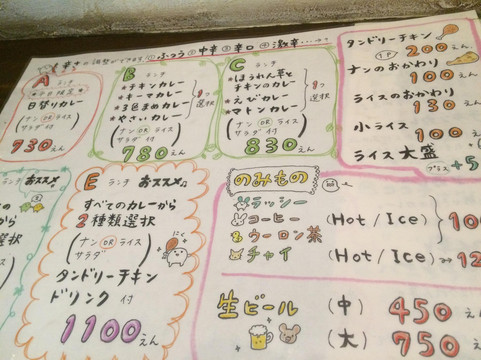 辛さが調整ができます。①ふつう②中辛③辛口④激辛…→?
A ランチ
日替りカレー
(ナンORライス
サラダ付)
730えん
B ランチ
*チキンカレー
*キーマカレー
*3色まめカレー
*やさいカレー
1つ選択
(ナンORライス
サラダ付)
780えん
C ランチ
*ほうれん草と
チキンのカレー
*えびカレー
*マトンカレー
1つ選択
(ナンORライス
サラダ付)
830えん
タンドリーチキン
1P 200えん
ナンのおかわり
100えん
ライスのおかわり
130えん
小ライス
100えん
ライス大盛
プラス+5
ランチ おススメ♪
E ランチ おススメ♪
すべてのカレーから
2種類選択
(ナンORライス
サラダ)
タンドリーチキン
ドリンク付
1100えん
のみもの
ラッシー
コーヒー (Hot/Ice)
ウーロン茶
チャイ (Hot/Ice)
100
12
生ビール (中) 450えん
(大) 750えん